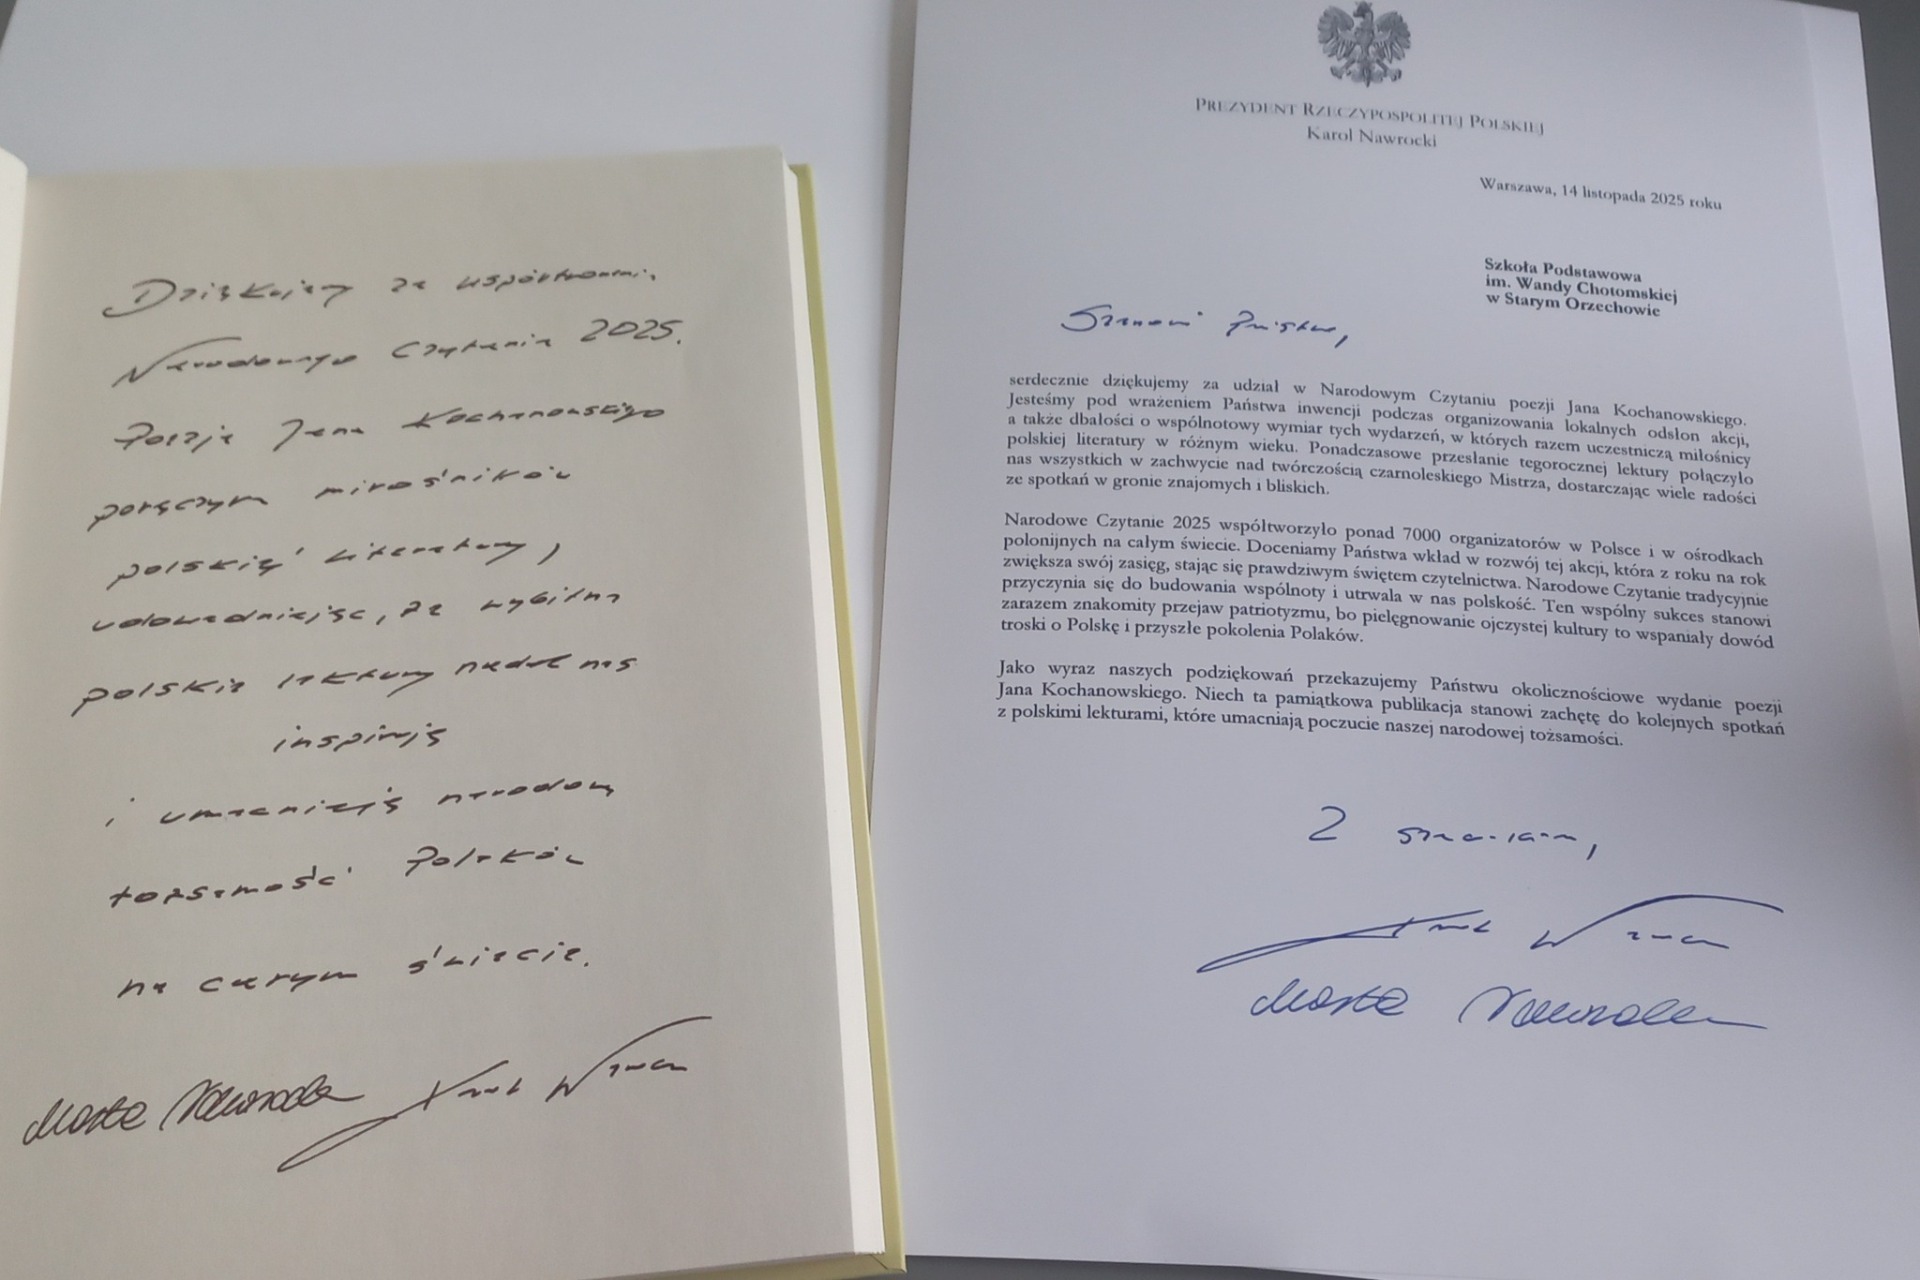 Dziękujemy za współtworzenie
Narodowego Czytania 2025.
Poezja Jana Kochanowskiego
połączyła miłośników
polskiej literatury,
udowadniając, że wybitne
polskie lektury nadal nas
inspirują
i umacniają narodową
tożsamość Polaków
na całym świecie.
Marta Nawrocka Karol Nawrocki
PREZYDENT RZECZYPOSPOLITEJ POLSKIEJ
Karol Nawrocki
Warszawa, 14 listopada 2025 roku
Szkoła Podstawowa
im. Wandy Chotomskiej
w Starym Orzechowie
Szanowni Państwo,
serdecznie dziękujemy za udział w Narodowym Czytaniu poezji Jana Kochanowskiego.
Jesteśmy pod wrażeniem Państwa inwencji podczas organizowania lokalnych odsłon akcji,
a także dbałości o wspólnotowy wymiar tych wydarzeń, w których razem uczestniczą miłośnicy
polskiej literatury w różnym wieku. Ponadczasowe przesłanie tegorocznej lektury połączyło
nas wszystkich w zachwycie nad twórczością czarnoleskiego Mistrza, dostarczając wiele radości
ze spotkań w gronie znajomych i bliskich.
Narodowe Czytanie 2025 współtworzyło ponad 7000 organizatorów w Polsce i w ośrodkach
polonijnych na całym świecie. Doceniamy Państwa wkład w rozwój tej akcji, która z roku na rok
zwiększa swój zasięg, stając się prawdziwym świętem czytelnictwa. Narodowe Czytanie tradycyjnie
przyczynia się do budowania wspólnoty i utrwala w nas polskość. Ten wspólny sukces stanowi
zarazem znakomity przejaw patriotyzmu, bo pielęgnowanie ojczystej kultury to wspaniały dowód
troski o Polskę i przyszłe pokolenia Polaków.
Jako wyraz naszych podziękowań przekazujemy Państwu okolicznościowe wydanie poezji
Jana Kochanowskiego. Niech ta pamiątkowa publikacja stanowi zachętę do kolejnych spotkań
z polskimi lekturami, które umacniają poczucie naszej narodowej tożsamości.
Z szacunkiem,
Karol Nawrocki
Marta Nawrocka